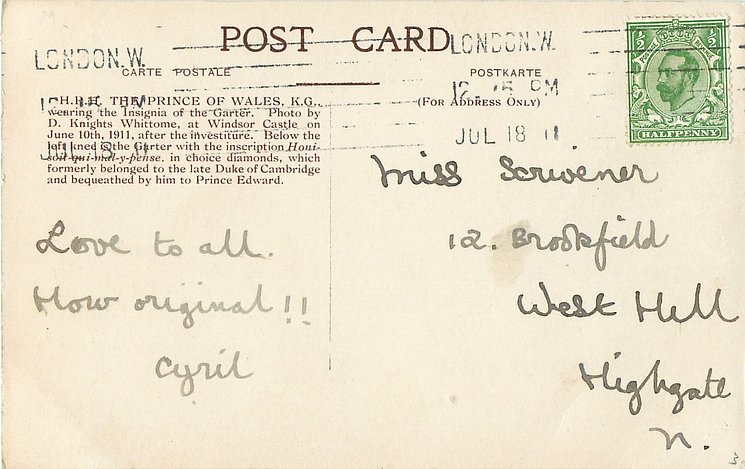 LONDON.W.
POST CARD
LONDON.W.
CARTE POSTALE
POSTKARTE
12.15 PM
(For Address Only)
JUL 18 11
H.R.H. THE PRINCE OF WALES, K.G.,
wearing the Insignia of the Garter. Photo by
D. Knights Whittome, at Windsor Castle on
June 10th, 1911, after the investiture. Below the
left knee is the Garter with the inscription Honi-
soit-qui-mal-y-pense. in choice diamonds, which
formerly belonged to the late Duke of Cambridge
and bequeathed by him to Prince Edward.
JUL 18 11
½ ½
HALFPENNY
Love to all.
How original!!
Cyril
Miss Scrivener
12. Brookfield
West Hill
Highgate
N.